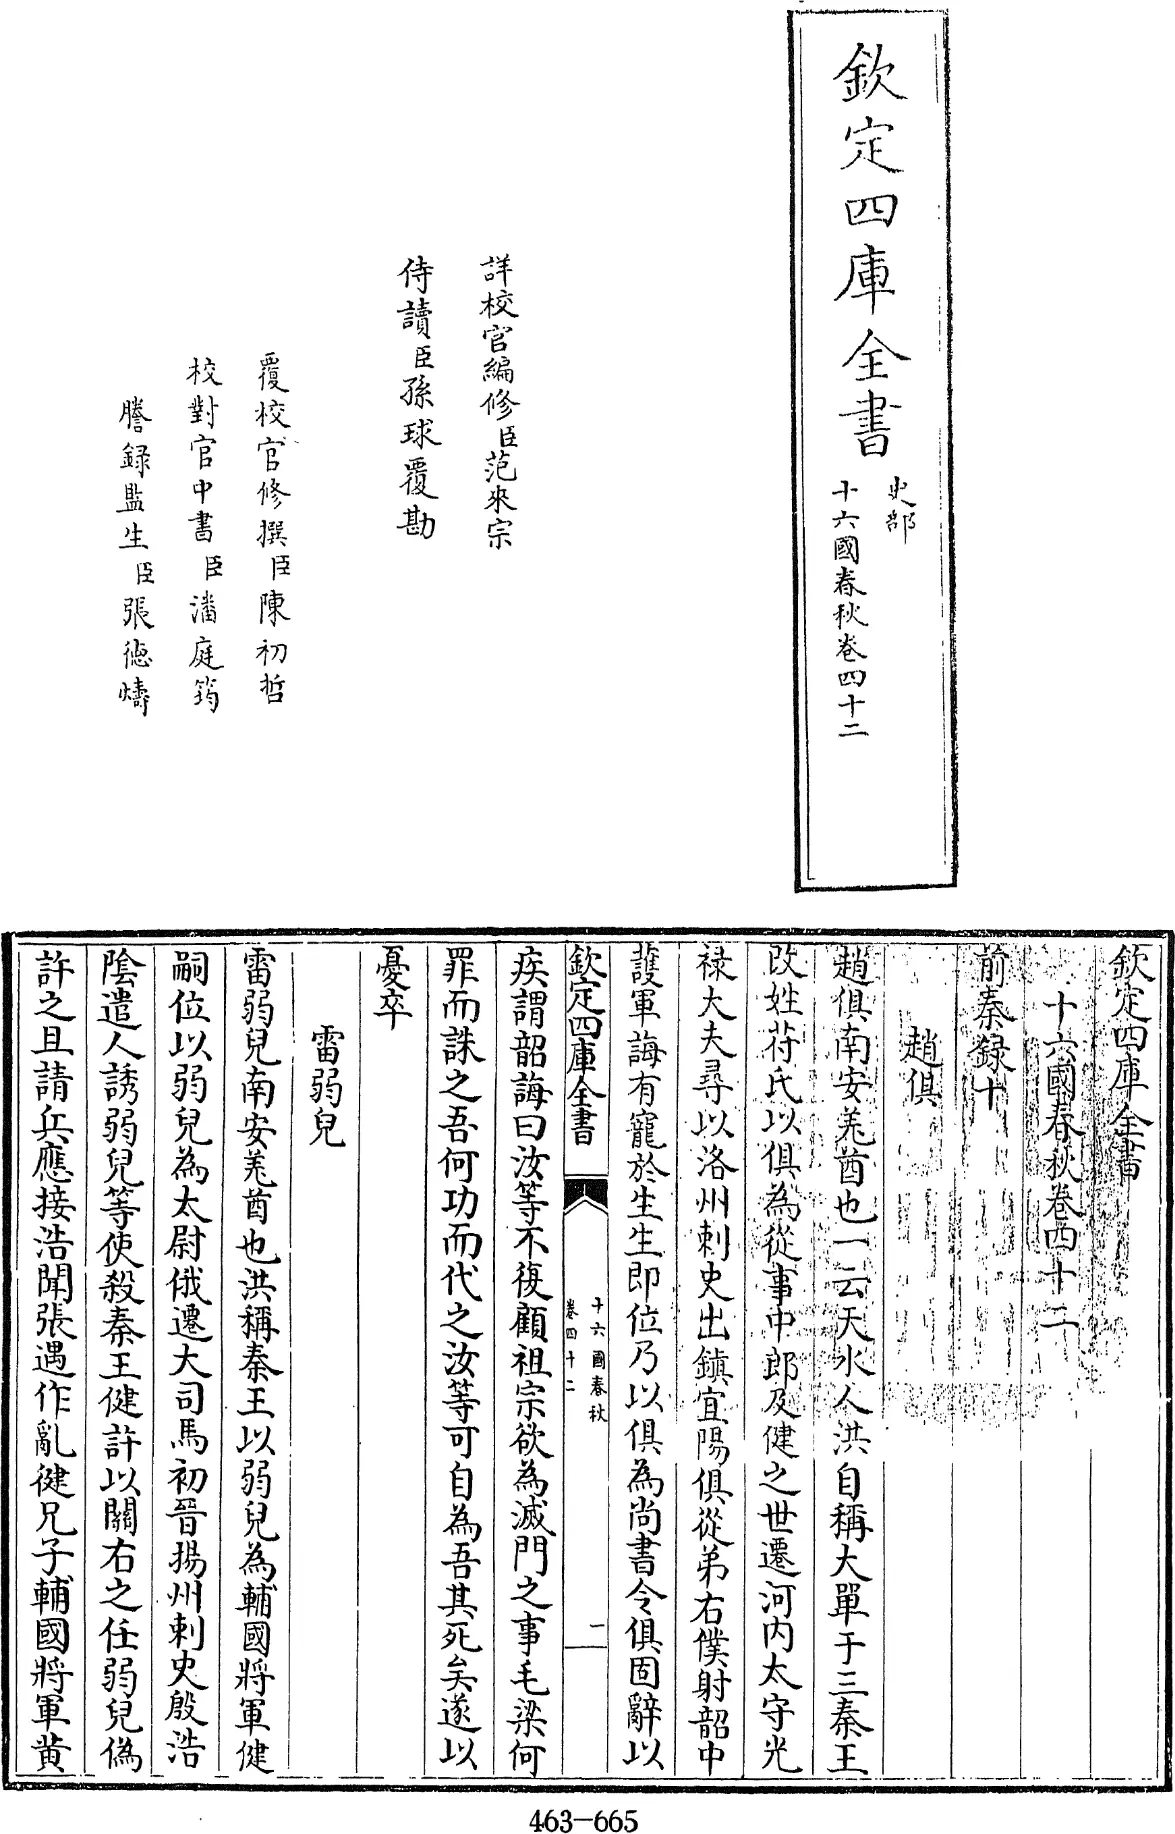 欽定四庫全書
史部
十六國春秋卷四十二
詳校官編修臣范來宗
侍讀臣孫球覆勘
覆校官修撰臣陳初哲
校對官中書臣潘庭筠
謄録監生臣張德燽
欽定四庫全書
十六國春秋卷四十二
前秦録十
趙俱
趙俱南安羌酋也一云天水人洪自稱大單于三秦王
改姓苻氏以俱為從事中郎及健之世遷河内太守光
禄大夫尋以洛州刺史出鎮宜陽俱從弟右僕射韶中
護軍誨有寵於生生即位乃以俱為尚書令俱固辭以
欽定四庫全書
十六國春秋
卷四十二
一
疾謂韶誨曰汝等不復顧祖宗欲為滅門之事毛梁何
罪而誅之吾何功而代之汝等可自為吾其死矣遂以
憂卒
雷弱兒
雷弱兒南安羌酋也洪稱秦王以弱兒為輔國將軍健
嗣位以弱兒為太尉俄遷大司馬初晉揚州刺史殷浩
陰遣人誘弱兒等使殺秦王健許以關右之任弱兒偽
許之且請兵應接浩聞張遇作亂健兄子輔國將軍黄
463-665